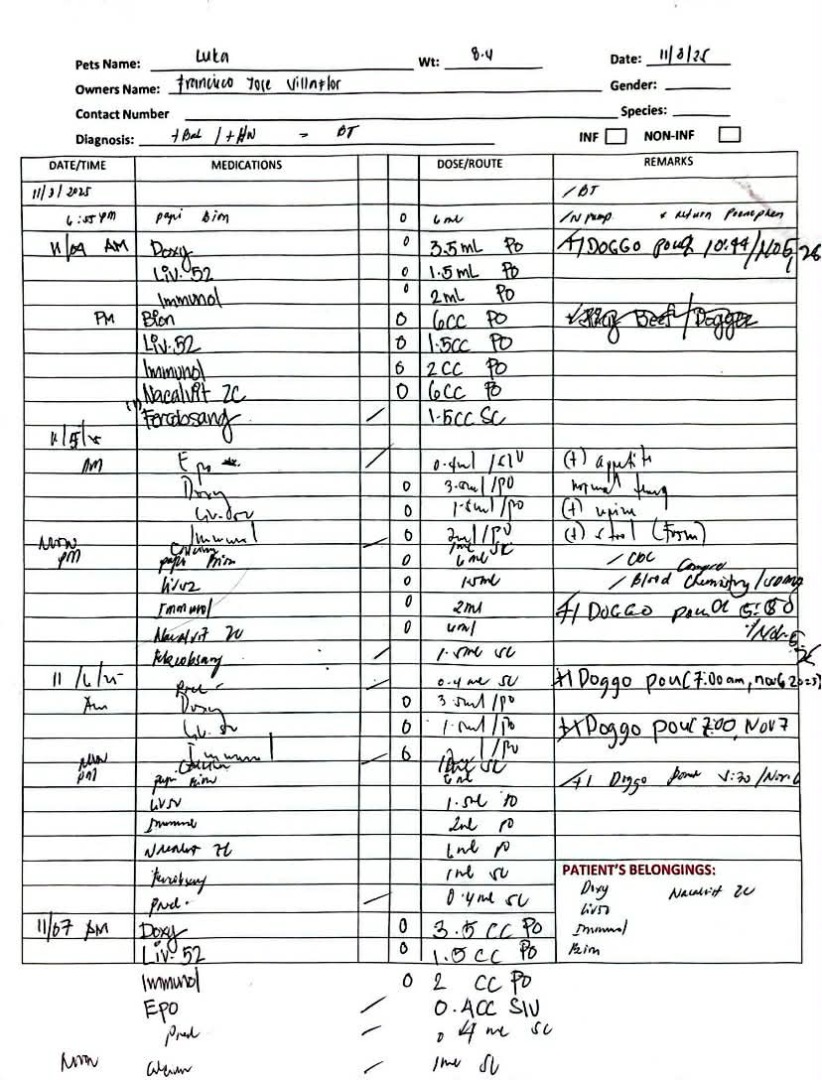 Pets Name: Luka Wt: 8.4 Date: 11/3/25
Owners Name: Francisco Jose Villaflor Gender:
Contact Number Species:
Diagnosis: BT INF NON-INF
DATE/TIME MEDICATIONS DOSE/ROUTE REMARKS
11/3/2025 / BT
6:55 PM papi Bion 0 6 ml
11/04 AM Doxy 0 3.5 mL PO +1 DOGGO pouch 10:44/NOV5,25
Liv. 52 0 1.5 mL PO
Immunol 0 2 mL PO
PM Bion 0 6cc PO
Liv. 52 0 1.5cc PO
Immunol 0 2 cc PO
Nacalvit ZC 0 6cc PO
Fercobsang / 1.5cc SC
11/5/25
AM Epo / 0.4ml / SIV (+) appetite
Doxy 0 3.5ml / PO
Liv. 52 0 1.5ml / PO (+) urine
Immunol 0 2ml / PO (+) stool (Form)
NOON / 1ml SC
PM papi Bion 0 6 ml / CBC
Liv52 0 1.5ml / Blood Chemistry
Immunol 0 2ml +1 DOGGO
Nacalvit ZC 0 6ml
Fercobsang / 1.5ml SC
11/6/25 Pred - / 0.4 ml SC +1 Doggo pouch (7:00am, nov 6 2025)
Am Doxy 0 3.5ml / PO
Liv. 52 0 1.5ml / PO +1 Doggo pouch 7:00, NOV 7
Immunol 0 / PO
NOON / 1ml SC
PM papi Bion 6 ml +1 Doggo
Liv52 1.5ml PO
Immunol 2ml PO
Nacalvit ZC 6ml PO
Fercobsang 1ml SC
Pred. / 0.4 ml SC
PATIENT'S BELONGINGS:
Doxy Nacalvit ZC
Liv52
Immunol
Bion
11/07 AM Doxy 0 3.5 cc PO
Liv. 52 0 1.5 cc PO
Immunol 0 2 cc PO
Epo / 0.4cc SIV
Pred / 0.4 ml SC
Noon / 1ml SC